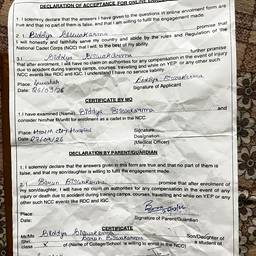 DECLARATION OF ACCEPTANCE FOR ONLINE ENR
1. I solemnly declare that the answers I have given to the questions in online enrolment form are
true and that no part of them is false, and that I am willing to fulfil the engagement made.
2. I, Biddya Biswakarma promise that
I will honestly and faithfully serve my country and abide by the rules and Regulation of the
National Cadet Corps (NCC) that I will, to the best of my ability.
3. I Biddya Biswakarma further promise
that after enrolment, I will have no claim on authorities for any compensation in the event of injury
or due to accident during training camps, courses, travelling and while on YEP or any other such
NCC events like RDC and IGC. I understand I have no service liability.
Place:
Date:
Signature of Applicant
CERTIFICATE BY MO
1. I have examined (Name) Biddya Biswakarma and
consider him/her fit/unfit for enrolment as a cadet in the NCC
Place: Hospital
Date:
Signature
Designation
(Medical Officer)
DECLARATION BY PARENT/GUARDIAN
1. I solemnly declare that the answers given in this form are true and that no part of them is
false, and that my son/daughter is willing to fulfil the engagement made.
2. I, Biswakarma promise that after enrolment of
my son/daughter, I will have no claim on authorities for any compensation in the event of any
injury or death due to accident during training camps, courses, travelling and while on YEP or any
other such NCC events like RDC and IGC.
Place:
Date:
Signature of Parent/Guardian
CERTIFICATE
Mr/Ms Biddya Biswakarma Son/Daughter of
Shri Biswakarma a student of
class X of (Name of College/School is willing to enroll in the NCC)